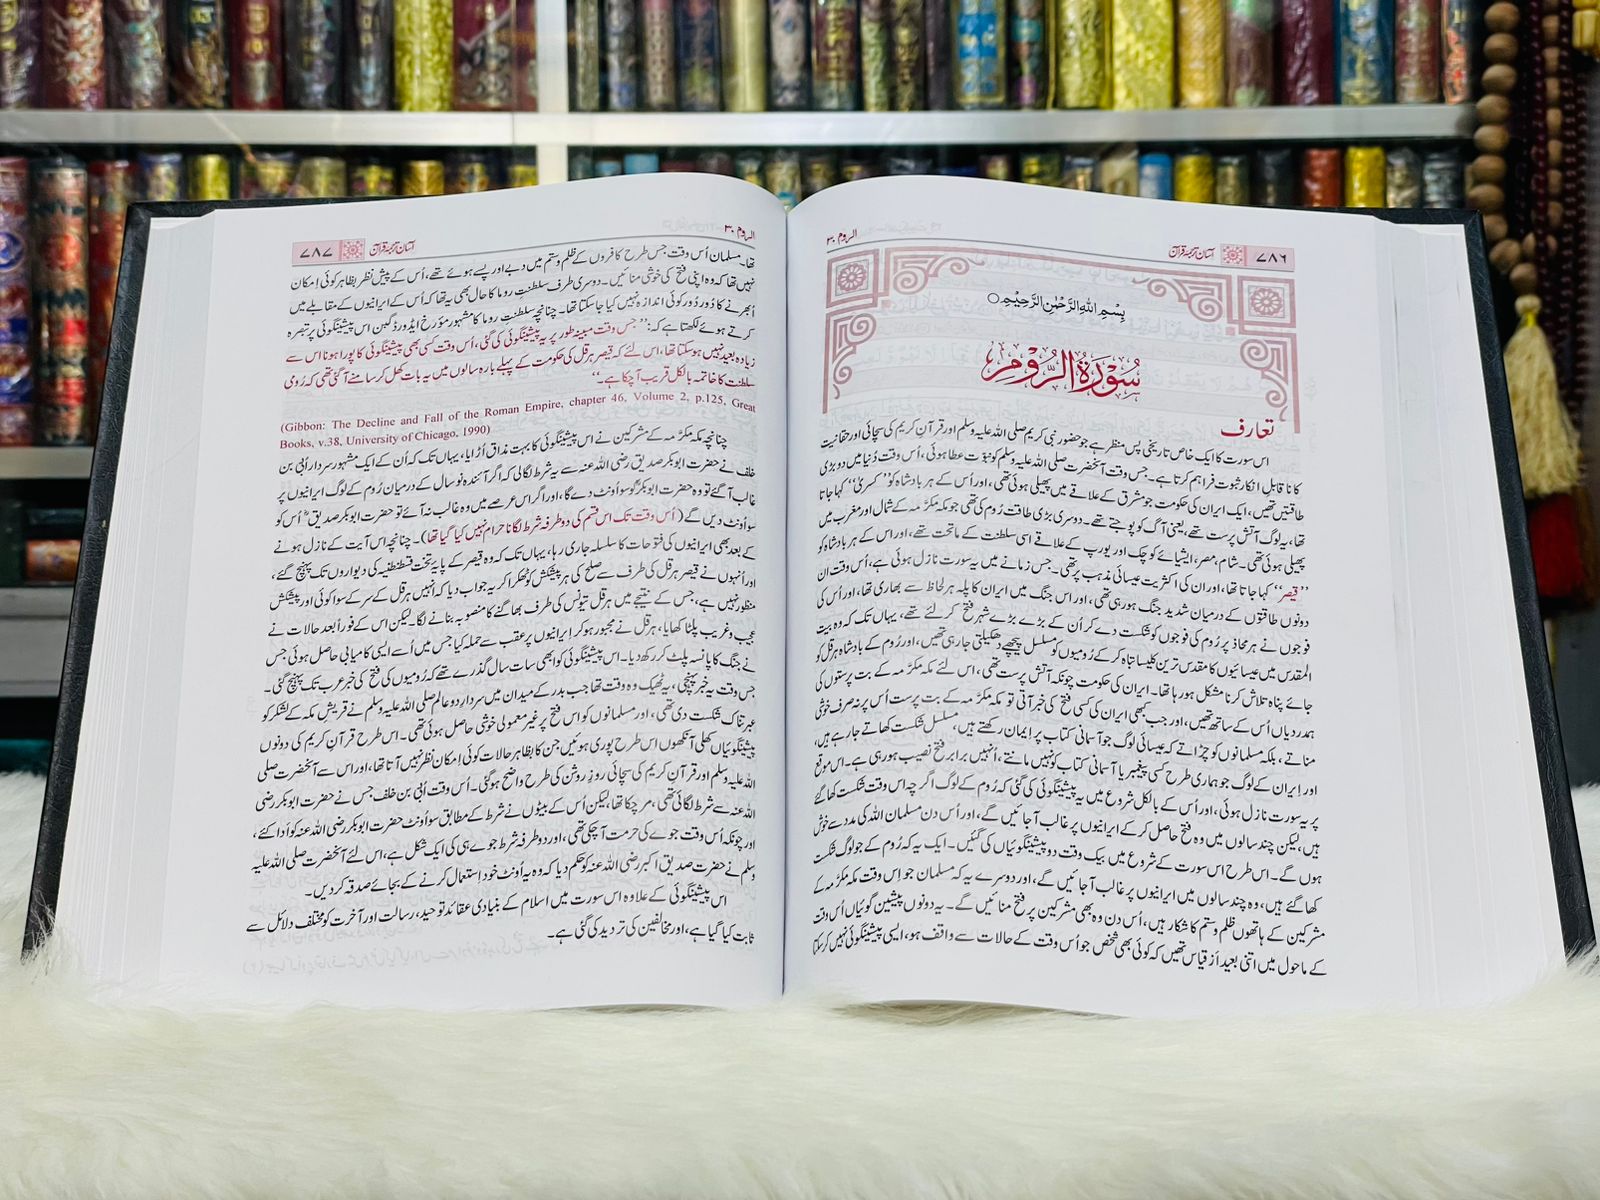 ۷۸۶ آسان ترجمۂ قرآن الروم ۳۰
بِسْمِ اللهِ الرَّحْمٰنِ الرَّحِيْمِ
سُوْرَةُ الرُّوْمِ
تعارف
اس سورت کا ایک خاص تاریخی پس منظر ہے جو حضور نبی کریم صلی اللہ علیہ وسلم اور قرآنِ کریم کی سچائی اور حقانیت
کا ناقابلِ انکار ثبوت فراہم کرتا ہے۔ جس وقت آنحضرت صلی اللہ علیہ وسلم کو نبوّت عطا ہوئی، اُس وقت دُنیا میں دو بڑی
طاقتیں تھیں، ایک ایران کی حکومت جو مشرق کے علاقے میں پھیلی ہوئی تھی، اور اُس کے ہر بادشاہ کو ’’کسریٰ‘‘ کہا جاتا
تھا، یہ لوگ آتش پرست تھے، یعنی آگ کو پوجتے تھے۔ دوسری بڑی طاقت رُوم کی تھی جو مکہ مکرَّمہ کے شمال اور مغرب میں
پھیلی ہوئی تھی۔ شام، مصر، ایشیائے کوچک اور یورپ کے علاقے اسی سلطنت کے ماتحت تھے، اور اس کے ہر بادشاہ کو
’’قیصر‘‘ کہا جاتا تھا، اور ان کی اکثریت عیسائی مذہب پر تھی۔ جس زمانے میں یہ سورت نازل ہوئی ہے، اُس وقت ان
دونوں طاقتوں کے درمیان شدید جنگ ہو رہی تھی، اور اس جنگ میں ایران کا پلہ ہر لحاظ سے بھاری تھا، اور اُس کی
فوجوں نے ہر محاذ پر رُوم کی فوجوں کو شکست دے کر اُن کے بڑے بڑے شہر فتح کر لئے تھے، یہاں تک کہ وہ بیت
المقدس میں عیسائیوں کا مقدس ترین کلیسا تباہ کر کے رُومیوں کو مسلسل پیچھے دھکیلتی جا رہی تھیں، اور رُوم کے بادشاہ ہرقل کو
جائے پناہ تلاش کرنا مشکل ہو رہا تھا۔ ایران کی حکومت چونکہ آتش پرست تھی، اس لئے مکہ مکرَّمہ کے بت پرستوں کی
ہمدردیاں اُس کے ساتھ تھیں، اور جب کبھی ایران کی کسی فتح کی خبر آتی تو مکہ مکرَّمہ کے بت پرست اُس پر نہ صرف خوشی
مناتے، بلکہ مسلمانوں کو چڑاتے کہ عیسائی لوگ جو آسمانی کتاب پر اِیمان رکھتے ہیں، مسلسل شکست کھاتے جا رہے ہیں،
اور اِیران کے لوگ جو ہماری طرح کسی پیغمبر یا آسمانی کتاب کو نہیں مانتے، اُنہیں برابر فتح نصیب ہو رہی ہے۔ اس موقع
پر یہ سورت نازل ہوئی، اور اُس کے بالکل شروع میں یہ پیشینگوئی کی گئی کہ رُوم کے لوگ اگرچہ اس وقت شکست کھا گئے
ہیں، لیکن چند سالوں میں وہ فتح حاصل کر کے ایرانیوں پر غالب آ جائیں گے، اور اس دن مسلمان اللہ کی مدد سے خوش
ہوں گے۔ اس طرح اس سورت کے شروع میں بیک وقت دو پیشینگوئیاں کی گئیں۔ ایک یہ کہ رُوم کے جو لوگ شکست
کھا گئے ہیں، وہ چند سالوں میں ایرانیوں پر غالب آ جائیں گے، اور دوسرے یہ کہ مسلمان جو اس وقت مکہ مکرَّمہ کے
مشرکین کے ہاتھوں ظلم و ستم کا شکار ہیں، اُس دن وہ بھی مشرکین پر فتح منائیں گے۔ یہ دونوں پیشین گوئیاں اُس وقت
کے ماحول میں اتنی بعید از قیاس تھیں کہ کوئی بھی شخص جو اُس وقت کے حالات سے واقف ہو، ایسی پیشینگوئی نہیں کر سکتا
۷۸۷ آسان ترجمۂ قرآن الروم ۳۰
تھا۔ مسلمان اُس وقت جس طرح کافروں کے ظلم و ستم میں دبے اور پسے ہوئے تھے، اُس کے پیش نظر بظاہر کوئی اِمکان
نہیں تھا کہ وہ اپنی فتح کی خوشی منائیں۔ دوسری طرف سلطنتِ روما کا حال بھی یہ تھا کہ اُس کے ایرانیوں کے مقابلے میں
اُبھرنے کا دُور دُور کوئی اندازہ نہیں کیا جا سکتا تھا۔ چنانچہ سلطنتِ روما کا مشہور مؤرخ ایڈورڈ گبن اس پیشینگوئی پر تبصرہ
کرتے ہوئے لکھتا ہے کہ: ’’جس وقت مبینہ طور پر یہ پیشینگوئی کی گئی، اُس وقت کسی بھی پیشینگوئی کا پورا ہونا اس سے
زیادہ بعید نہیں ہو سکتا تھا، اس لئے کہ قیصر ہرقل کی حکومت کے پہلے بارہ سالوں میں یہ بات کھل کر سامنے آ گئی تھی کہ رُومی
سلطنت کا خاتمہ بالکل قریب آ چکا ہے۔‘‘
(Gibbon: The Decline and Fall of the Roman Empire, chapter 46, Volume 2, p.125, Great
Books, v.38, University of Chicago, 1990)
چنانچہ مکہ مکرَّمہ کے مشرکین نے اس پیشینگوئی کا بہت مذاق اُڑایا، یہاں تک کہ اُن کے ایک مشہور سردار اُبی بن
خلف نے حضرت ابوبکر صدیق رضی اللہ عنہ سے یہ شرط لگا لی کہ اگر آئندہ نو سال کے درمیان رُوم کے لوگ ایرانیوں پر
غالب آ گئے تو وہ حضرت ابوبکرؓ کو سو اُونٹ دے گا، اور اگر اس عرصے میں وہ غالب نہ آئے تو حضرت ابوبکر صدیقؓ اُس کو
سو اُونٹ دیں گے (اُس وقت تک اس قسم کی دو طرفہ شرط لگانا حرام نہیں کیا گیا تھا)۔ چنانچہ اس آیت کے نازل ہونے
کے بعد بھی ایرانیوں کی فتوحات کا سلسلہ جاری رہا، یہاں تک کہ وہ قیصر کے پایہ تخت قسطنطنیہ کی دیواروں تک پہنچ گئے،
اور اُنہوں نے قیصر ہرقل کی طرف سے صلح کی ہر پیشکش کو ٹھکرا کر یہ جواب دیا کہ اُنہیں ہرقل کے سر کے سوا کوئی اور پیشکش
منظور نہیں ہے، جس کے نتیجے میں ہرقل تیونس کی طرف بھاگنے کا منصوبہ بنانے لگا۔ لیکن اس کے فوراً بعد حالات نے
عجیب و غریب پلٹا کھایا، ہرقل نے مجبور ہو کر اِیرانیوں پر عقب سے حملہ کیا جس میں اُسے ایسی کامیابی حاصل ہوئی جس
نے جنگ کا پانسہ پلٹ کر رکھ دیا۔ اس پیشینگوئی کو ابھی سات سال گذرے تھے کہ رُومیوں کی فتح کی خبر عرب تک پہنچ گئی۔
جس وقت یہ خبر پہنچی، یہ ٹھیک وہ وقت تھا جب بدر کے میدان میں سردارِ دو عالم صلی اللہ علیہ وسلم نے قریش مکہ کے لشکر کو
عبرتناک شکست دی تھی، اور مسلمانوں کو اس فتح پر غیر معمولی خوشی حاصل ہوئی تھی۔ اس طرح قرآنِ کریم کی دونوں
پیشینگوئیاں کھلی آنکھوں اس طرح پوری ہوئیں جن کا بظاہر حالات کوئی اِمکان نظر نہیں آتا تھا، اور اس سے آنحضرت صلی
اللہ علیہ وسلم اور قرآنِ کریم کی سچائی روزِ روشن کی طرح واضح ہو گئی۔ اُس وقت اُبی بن خلف جس نے حضرت ابوبکر رضی
اللہ عنہ سے شرط لگائی تھی، مر چکا تھا، لیکن اُس کے بیٹوں نے شرط کے مطابق سو اُونٹ حضرت ابوبکر رضی اللہ عنہ کو ادا کئے،
اور چونکہ اُس وقت جوے کی حرمت آ چکی تھی، اور دو طرفہ شرط جوے ہی کی ایک شکل ہے، اس لئے آنحضرت صلی اللہ علیہ
وسلم نے حضرت صدیق اکبر رضی اللہ عنہ کو حکم دیا کہ وہ یہ اُونٹ خود اِستعمال کرنے کے بجائے صدقہ کر دیں۔
اس پیشینگوئی کے علاوہ اس سورت میں اسلام کے بنیادی عقائد توحید، رسالت اور آخرت کو مختلف دلائل سے
ثابت کیا گیا ہے، اور مخالفین کی تردید کی گئی ہے۔